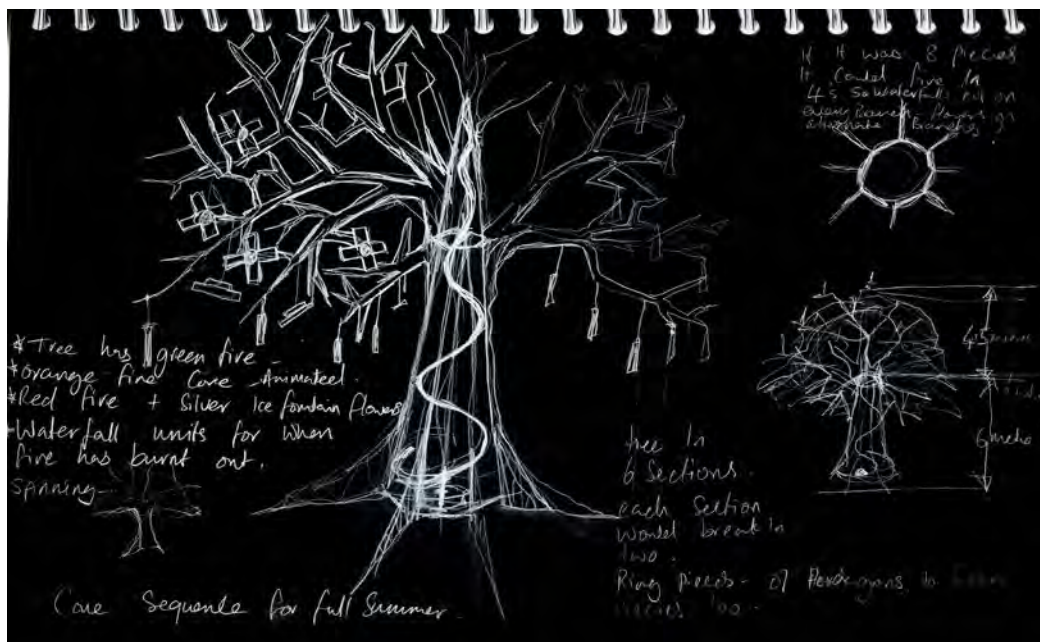 If it was 8 pieces
It could fire in
4s so waterfalls on
every Branch flowers on
alternate Branches.
4.5 metres
6 metre
*Tree has green fire -
*Orange fire Core - Animated.
*Red fire + Silver Ice fountain flowers
*Waterfall units for when
fire has burnt out.
Spinning -
tree in
6 Sections.
each Section
would break in
two.
Ring pieces - of
too -
Core Sequence for full Summer.